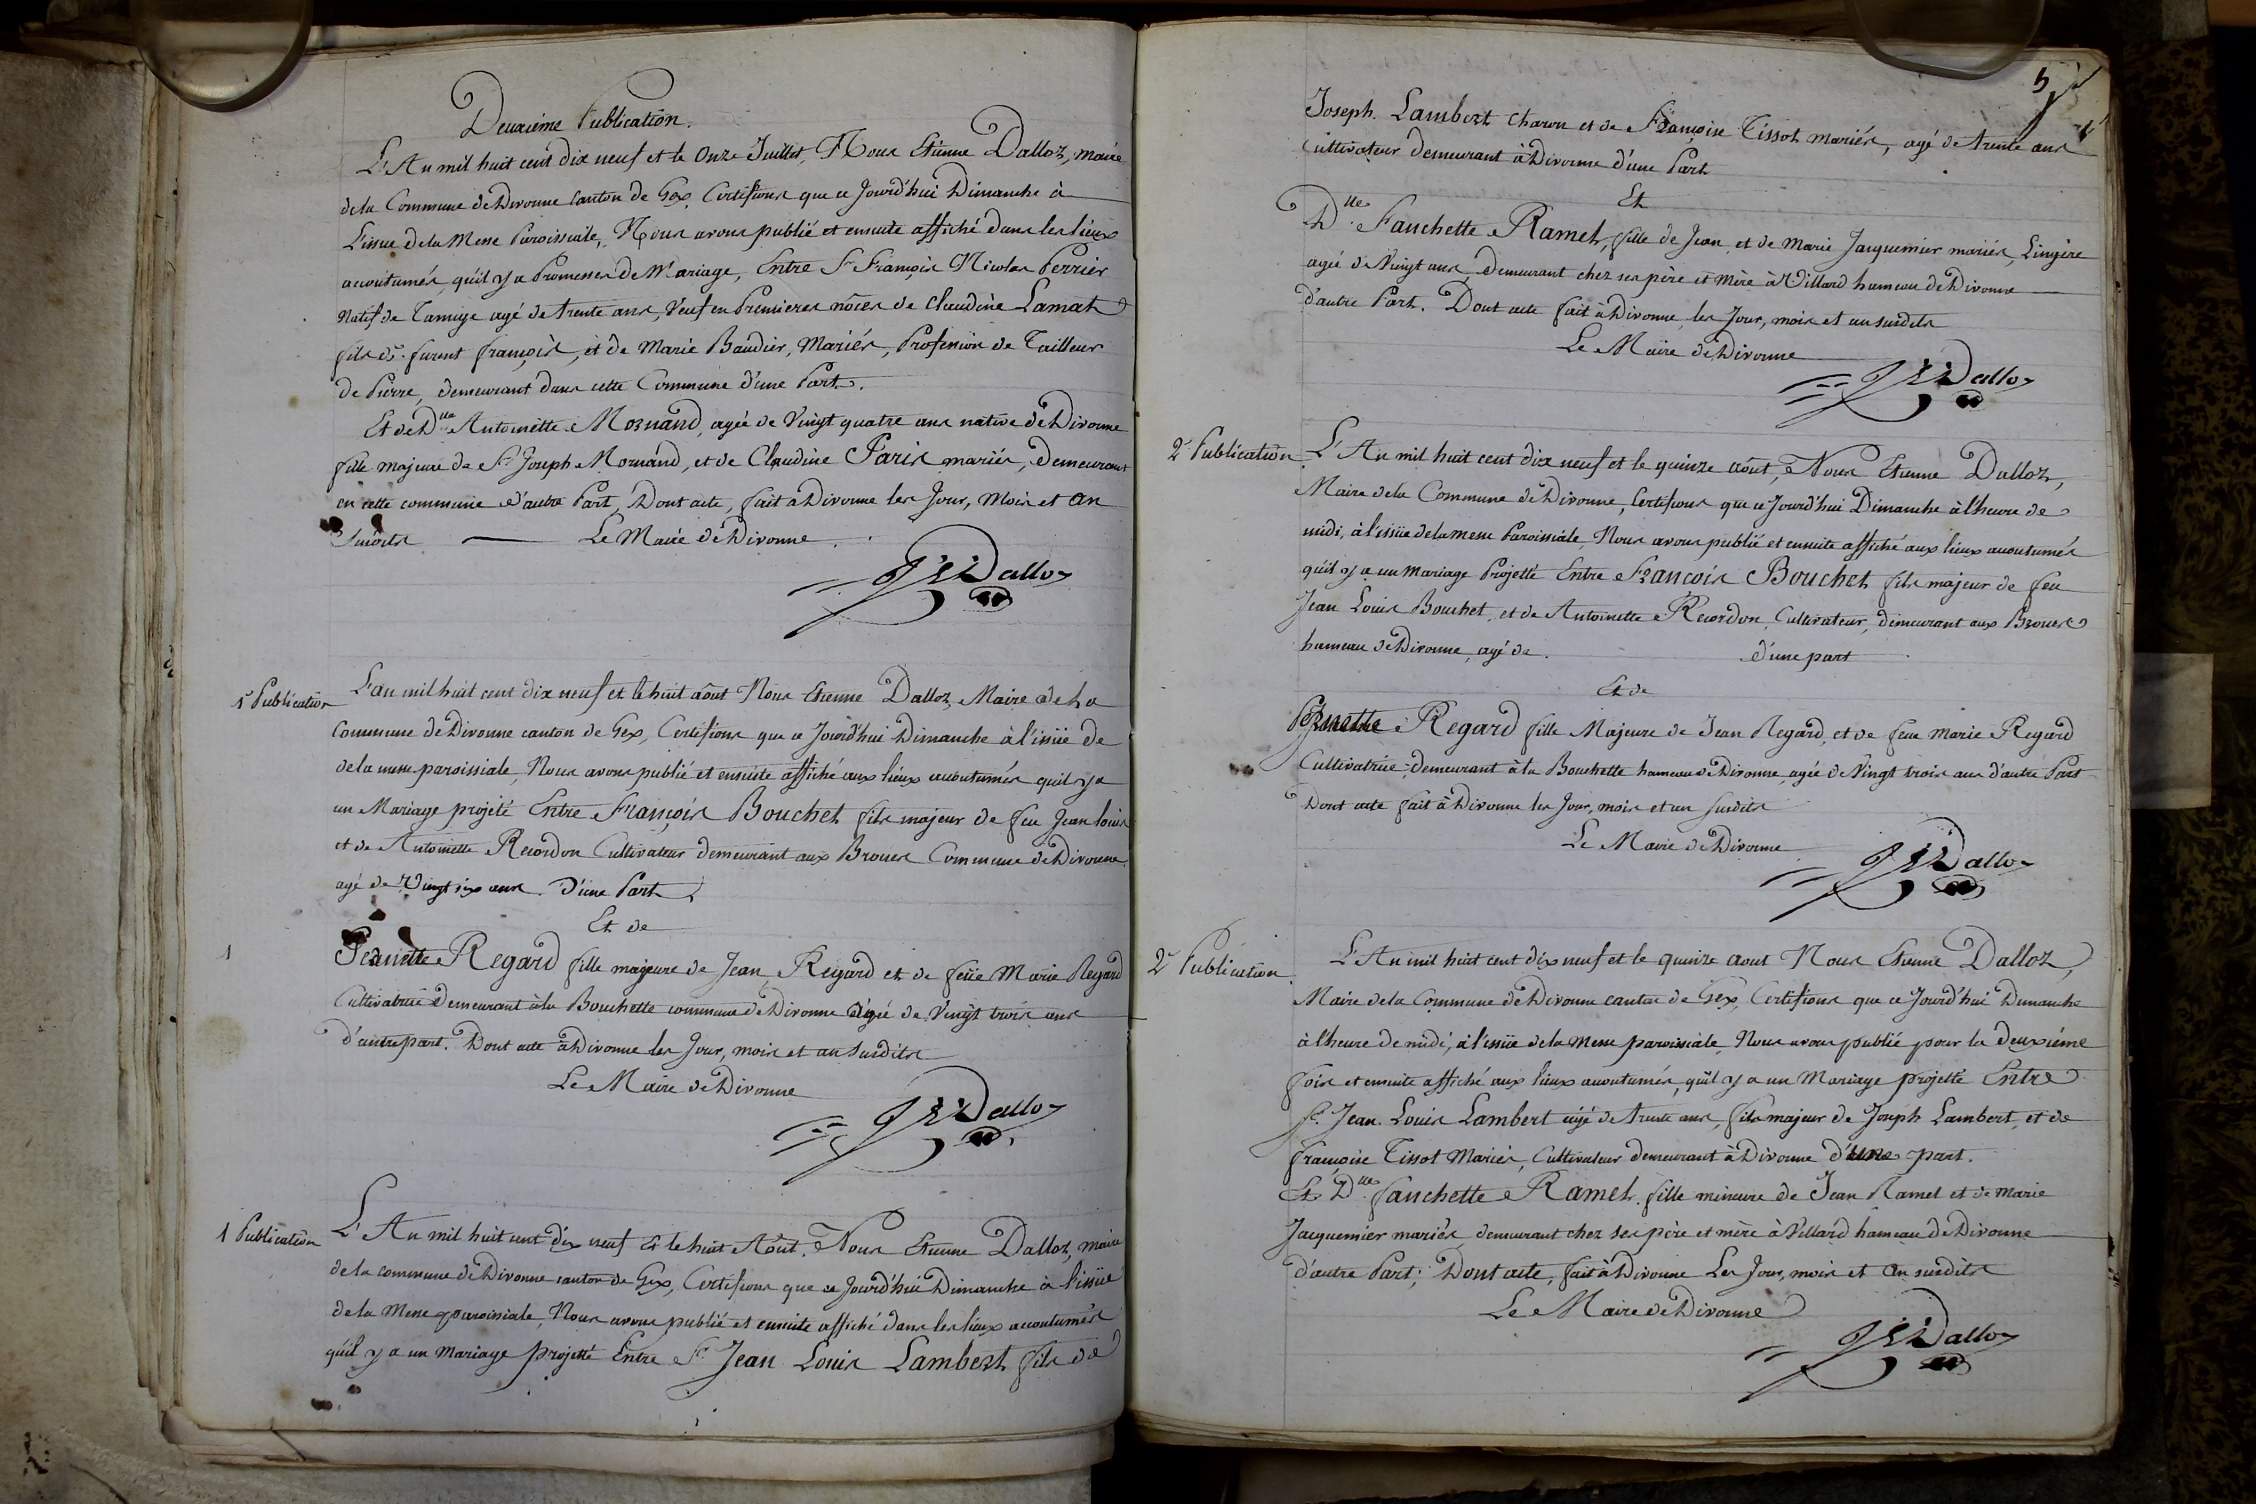 Deuxième Publication.
L'An mil huit cent dix neuf et le Onze Juillet, Nous Etienne Dalloz, maire
de la Commune de Divonne Canton de Gex, Certifions que ce Jourd'hui Dimanche à
L'issue de la Messe Paroissiale, Nous avons publié et ensuite affiché dans les lieux
accoutumés, qu'il y a Promesses de Mariage, Entre Sr François Nicolas Perrier
Natif de agé de trente ans, Veuf en Premieres nôces de Claudine Lamat
fils de furent françois, et de Marie Baudier, Mariés, Profession de Tailleur
de Pierre, demeurant dans cette Commune d'une Part.
Et de Dlle Antoinette Mornand, agée de Vingt quatre ans native de Divonne
fille majeure de Sr Joseph Mornand, et de Claudine Paris mariés, Demeurant
en cette commune d'autre Part, Dont acte, fait à Divonne les Jour, Mois et an
Susdits Le Maire de Divonne.
Dalloz
1e Publication
L'an mil huit cent dix neuf et le huit aôut Nous Etienne Dalloz, Maire de La
Commune de Divonne canton de Gex, Certifions que ce Jourd'hui Dimanche à l'issüe de
de la messe paroissiale, Nous avons publié et ensuite affiché aux lieux accoutumés qu'il y a
un Mariage projeté Entre François Bouchet fils majeur de feu Jean louis
et de Antoinette Recordon Cultivateur demeurant aux Broues Commune de Divonne
agé de Vingt six ans. D'une Part,
Et de
1
Jeanette Regard fille majeure de Jean Regard et de feüe Marie Regard
Cultivatrice demeurant à la Bouchette commune de Divonne agée de Vingt trois ans
d'autre part. Dont acte à Divonne les Jour, mois et an susdits
Le Maire de Divonne
Dalloz
1 Publication
L'An mil huit cent dix neuf Et le huit Aôut. Nous Etienne Dalloz, maire
de la commune de Divonne canton de Gex, Certifions que ce Jourd'hui Dimanche à l'issüe
de la Messe paroissiale, Nous avons publié et ensuite affiché dans les lieux accoutumés
qu'il y a un Mariage projetté Entre Sr Jean Louis Lambert fils de
5
Joseph Lambert Charon et de Françoise Tissot mariés, agé de trente ans
Cultivateur demeurant à Divonne d'une Part
Et
Dlle Fanchette Ramel, fille de Jean et de Marie Jacquemier mariés, Lingère
agée de Vingt ans, Demeurant chez ses père et mère à Villard hameau de Divonne
d'autre Part. Dont acte fait à Divonne les Jour, mois et an susdits
Le Maire de Divonne
Dalloz
2e Publication
L'An mil huit cent dix neuf et le quinze aôut, Nous Etienne Dalloz,
Maire de la Commune de Divonne, Certifions que ce Jourd'hui Dimanche à l'heure de
midi, à l'issüe de la messe Paroissiale, Nous avons publié et ensuite affiché aux lieux accoutumés
qu'il y a un Mariage Projetté Entre François Bouchet fils majeur de feu
Jean Louis Bouchet, et de Antoinette Recordon, Cultivateur, demeurant aux Broues
hameau de Divonne, agé de. d'une part
Et de
Regard fille Majeure de Jean Regard, et de feue Marie Regard
Cultivatrice, demeurant à la Bouchette hameau de Divonne, agée de Vingt trois ans d'autre Part
Dont acte fait à Divonne les Jour, mois et an susdits
Le Maire de Divonne
Dalloz
2e Publication
L'An mil huit cent dix neuf et le quinze aout Nous Etienne Dalloz,
Maire de la Commune de Divonne canton de Gex, Certifions que ce Jourd'hui Dimanche
à l'heure de midi, à l'issüe de la Messe paroissiale, Nous avons publié pour la deuxiéme
fois et ensuite affiché aux lieux accoutumés, qu'il y a un Mariage projetté Entre
Sr. Jean Louis Lambert agé de trente ans, fils majeur de Joseph Lambert, et de
françoise Tissot Mariés, Cultivateur demeurant à Divonne d'une part.
Et Dlle fanchette Ramel fille mineure de Jean Ramel et de Marie
Jacquemier mariés, demeurant chez ses père et mère à Villard hameau de Divonne
d'autre Part; Dont acte, fait à Divonne Les Jour, mois et an susdits
Le Maire de Divonne
Dalloz